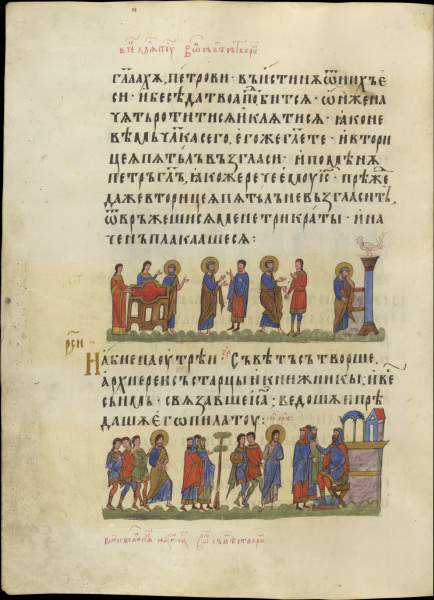 глаахѫ, петрови· въистинѫ ѿ нихъ е
си· и бесѣда твоа пѡбится· ѡнже на
чѧтъ ротитисѧ и клѧтисѧ· ꙗко не
вѣмь чл҃ка сего, егоже гл҃ете· и втори
цеѧ пѣтьлъ възгласи· и помѣнѫ
петръ гл҃ъ, ꙗкоже рече емоу і҃с· прѣж̾
даже вторицеѧ пѣтьлъ не възгласитъ,
ѿвръжешисѧ мене трикраты· и на
чѧтъ плакаашесѧ:
На биена оутрѣи съвѣтъ сътворше,
архиереи съ старцы и книжникы; и въ
сь сънмь· связавше і҃са; ведошѧ и прѣ
дашѧ его пилатоу: